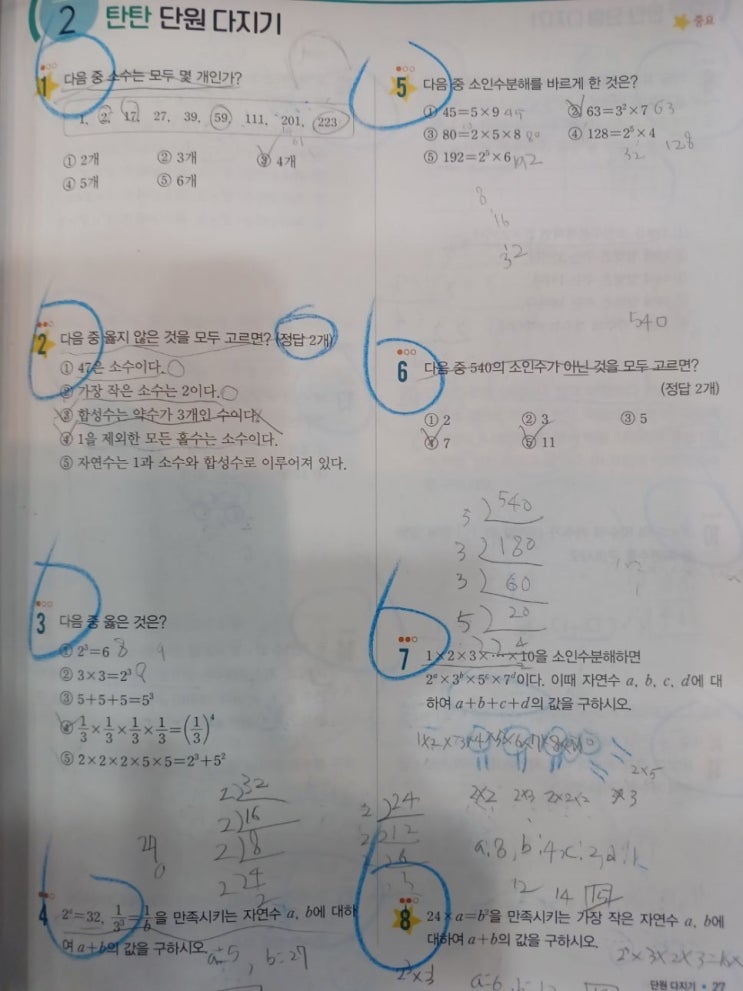 2 탄탄 단원 다지기
중요
1 다음 중 소수는 모두 몇 개인가?
1, 2, 17, 27, 39, 59, 111, 201, 223
① 2개 ② 3개 ③ 4개
④ 5개 ⑤ 6개
2 다음 중 옳지 않은 것을 모두 고르면? (정답 2개)
① 47은 소수이다.
② 가장 작은 소수는 2이다.
③ 합성수는 약수가 3개인 수이다.
④ 1을 제외한 모든 홀수는 소수이다.
⑤ 자연수는 1과 소수와 합성수로 이루어져 있다.
3 다음 중 옳은 것은?
① 2³=6 8 9
② 3×3=2³ 9
③ 5+5+5=5³
④ 1/3×1/3×1/3×1/3=(1/3)⁴
⑤ 2×2×2×5×5=2³+5²
2)32
2)16
2)8
2 24
2
4 2ᵃ=32, 1/3³=1/b을 만족시키는 자연수 a, b에 대하
여 a+b의 값을 구하시오.
a=5, b=27
5 다음 중 소인수분해를 바르게 한 것은?
① 45=5×9 45 ② 63=3²×7 63
③ 80=2×5×8 80 ④ 128=2⁵×4
32 128
⑤ 192=2⁵×6 192
8
16
32
540
6 다음 중 540의 소인수가 아닌 것을 모두 고르면?
(정답 2개)
① 2 ② 3 ③ 5
④ 7 ⑤ 11
3)540
3)180
3)60
5)20
7 1×2×3×⋯×10을 소인수분해하면
2ᵃ×3ᵇ×5ᶜ×7ᵈ이다. 이때 자연수 a, b, c, d에 대
하여 a+b+c+d의 값을 구하시오.
2×5
2×2 2×3 2×2×2 3×3
12 14 15
2)24
2)12
8 24×a=b²을 만족시키는 가장 작은 자연수 a, b에
대하여 a+b의 값을 구하시오.
2³×3
a=6
단원 다지기 • 27